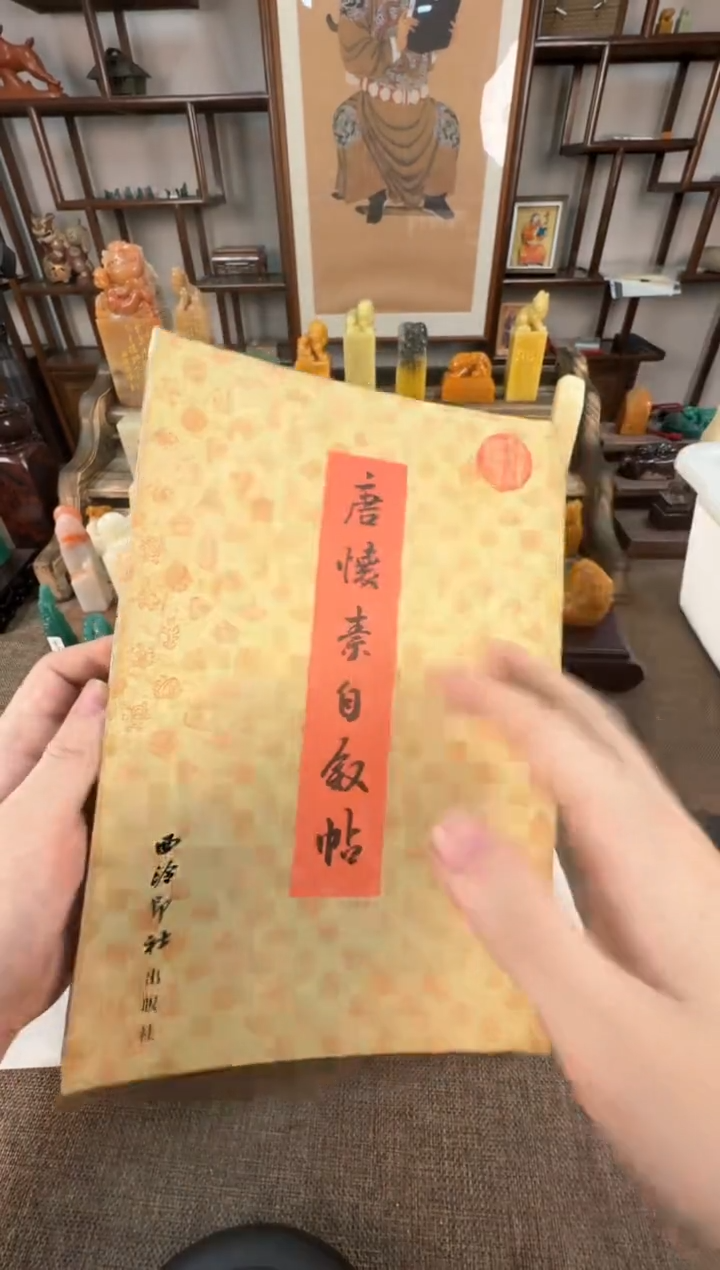 唐懷素自叙帖
西泠印社出版社